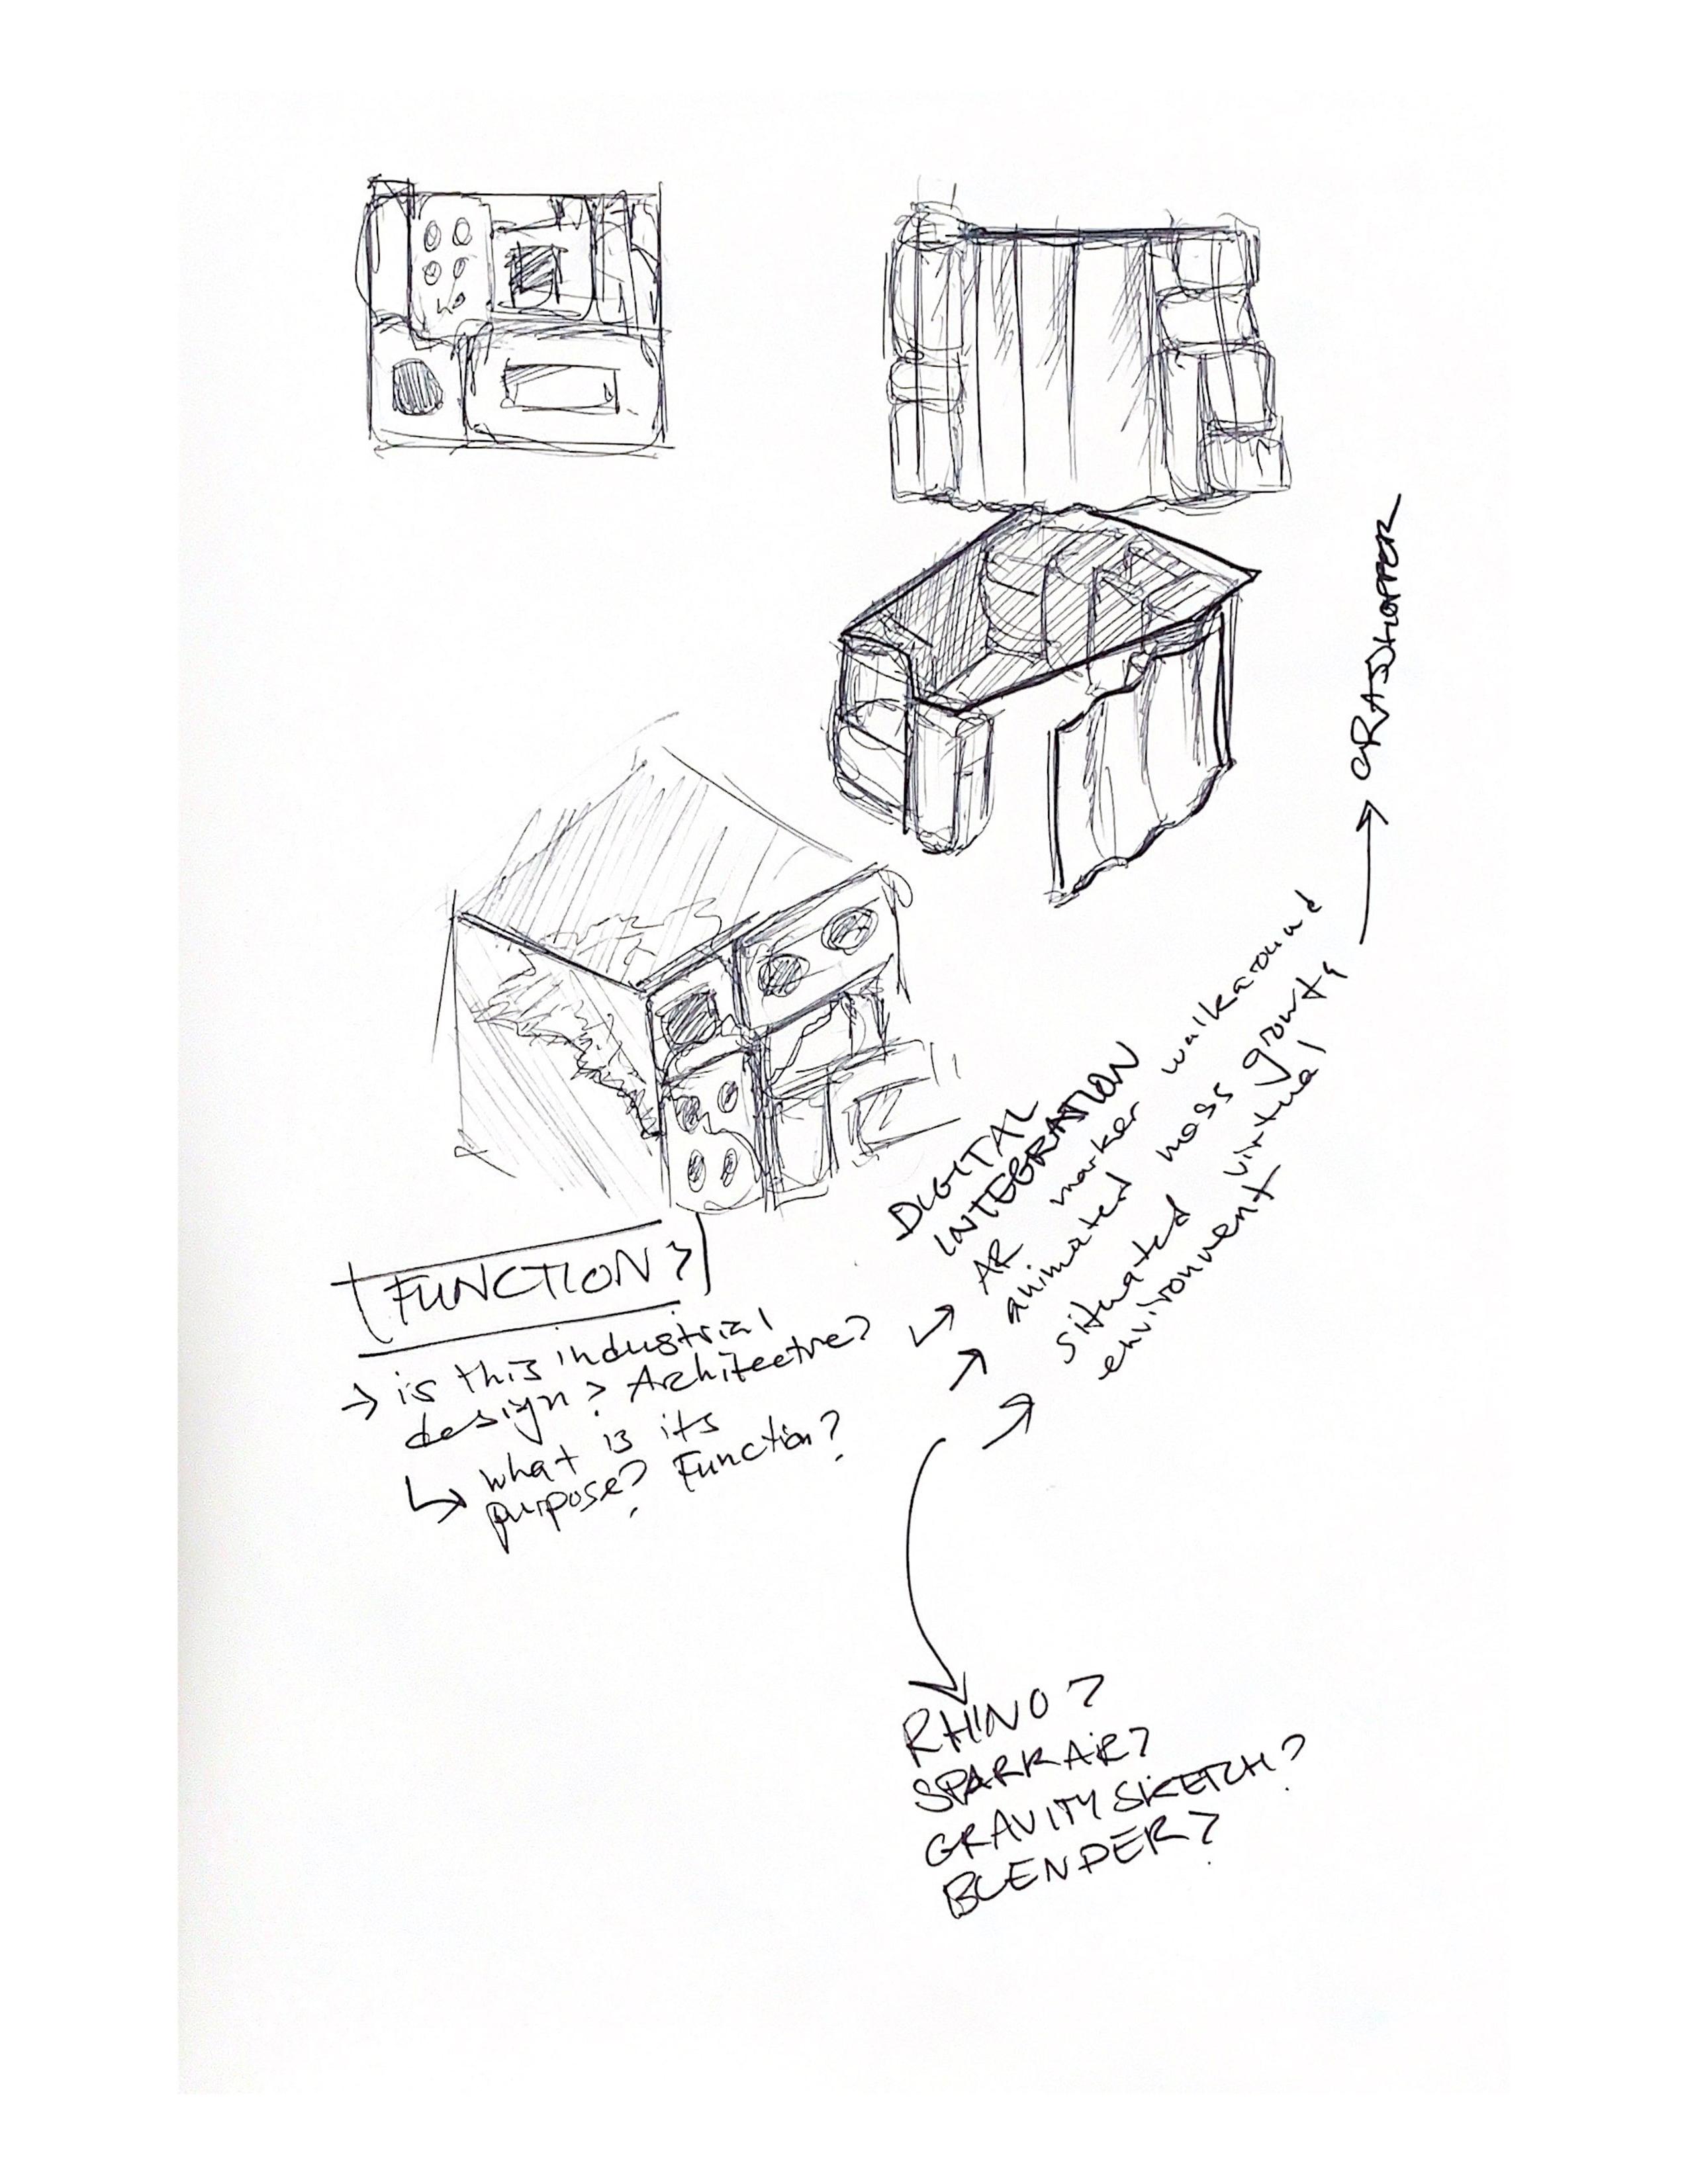 FUNCTION?
→ is this industrial
design? Architectre?
↳ what is its
purpose? Function?
DIGITAL
INTEGRATION
AR marker walkaround
animated moss growth → GRASSHOPPER
situated virtual
environment
RHINO?
SPARK AR?
GRAVITY SKETCH?
BLENDER?